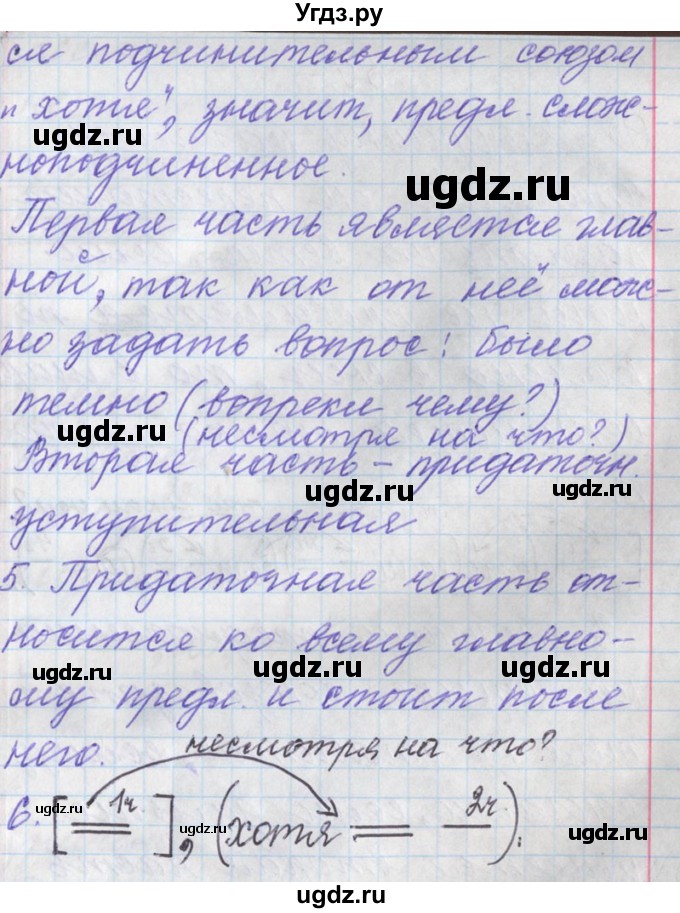 Угдз.ру
ся подчинительным союзом
„хотя", значит, предл. слож-
ugdz.ru
ноподчиненное.
ugdz.ru
Первая часть является глав-
ной, так как от неё мож-
но задать вопрос: было
темно (вопреки чему?)
ugdz.ru (несмотря на что?)
Вторая часть – придаточн.
ugdz.ru ugdz.ru
уступительная
5. Придаточная часть от-
носится ко всему главно-
ugdz.ru ugdz.ru ugdz.ru
му предл. и стоит после
него. несмотря на что?
6. [ 1ч. ], (хотя 2ч.).
ugdz.ru ugdz.ru ugdz.ru
ugdz.ru